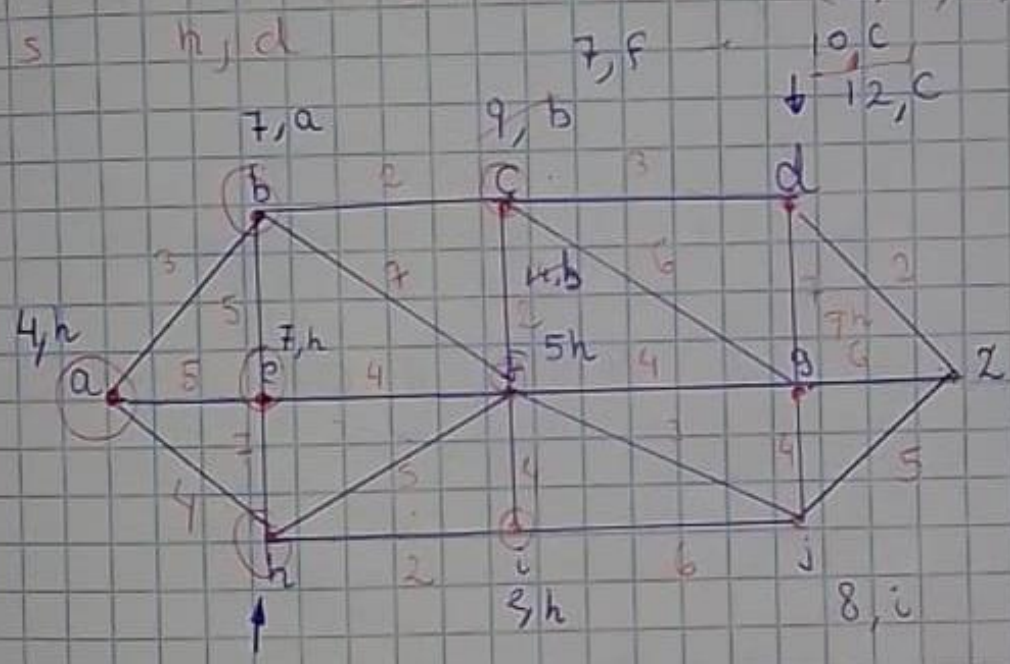 s h, d
7, f
10, c
12, c
7, a
9, b
b 2 c 3 d
3 5 7 4, b 2 6 7 2
4, h
7, h
5h
7h
a 5 e 4 f 4 g 6 z
4 7 5 4 7 4 5
h 2 i 6 j
2, h
8, i